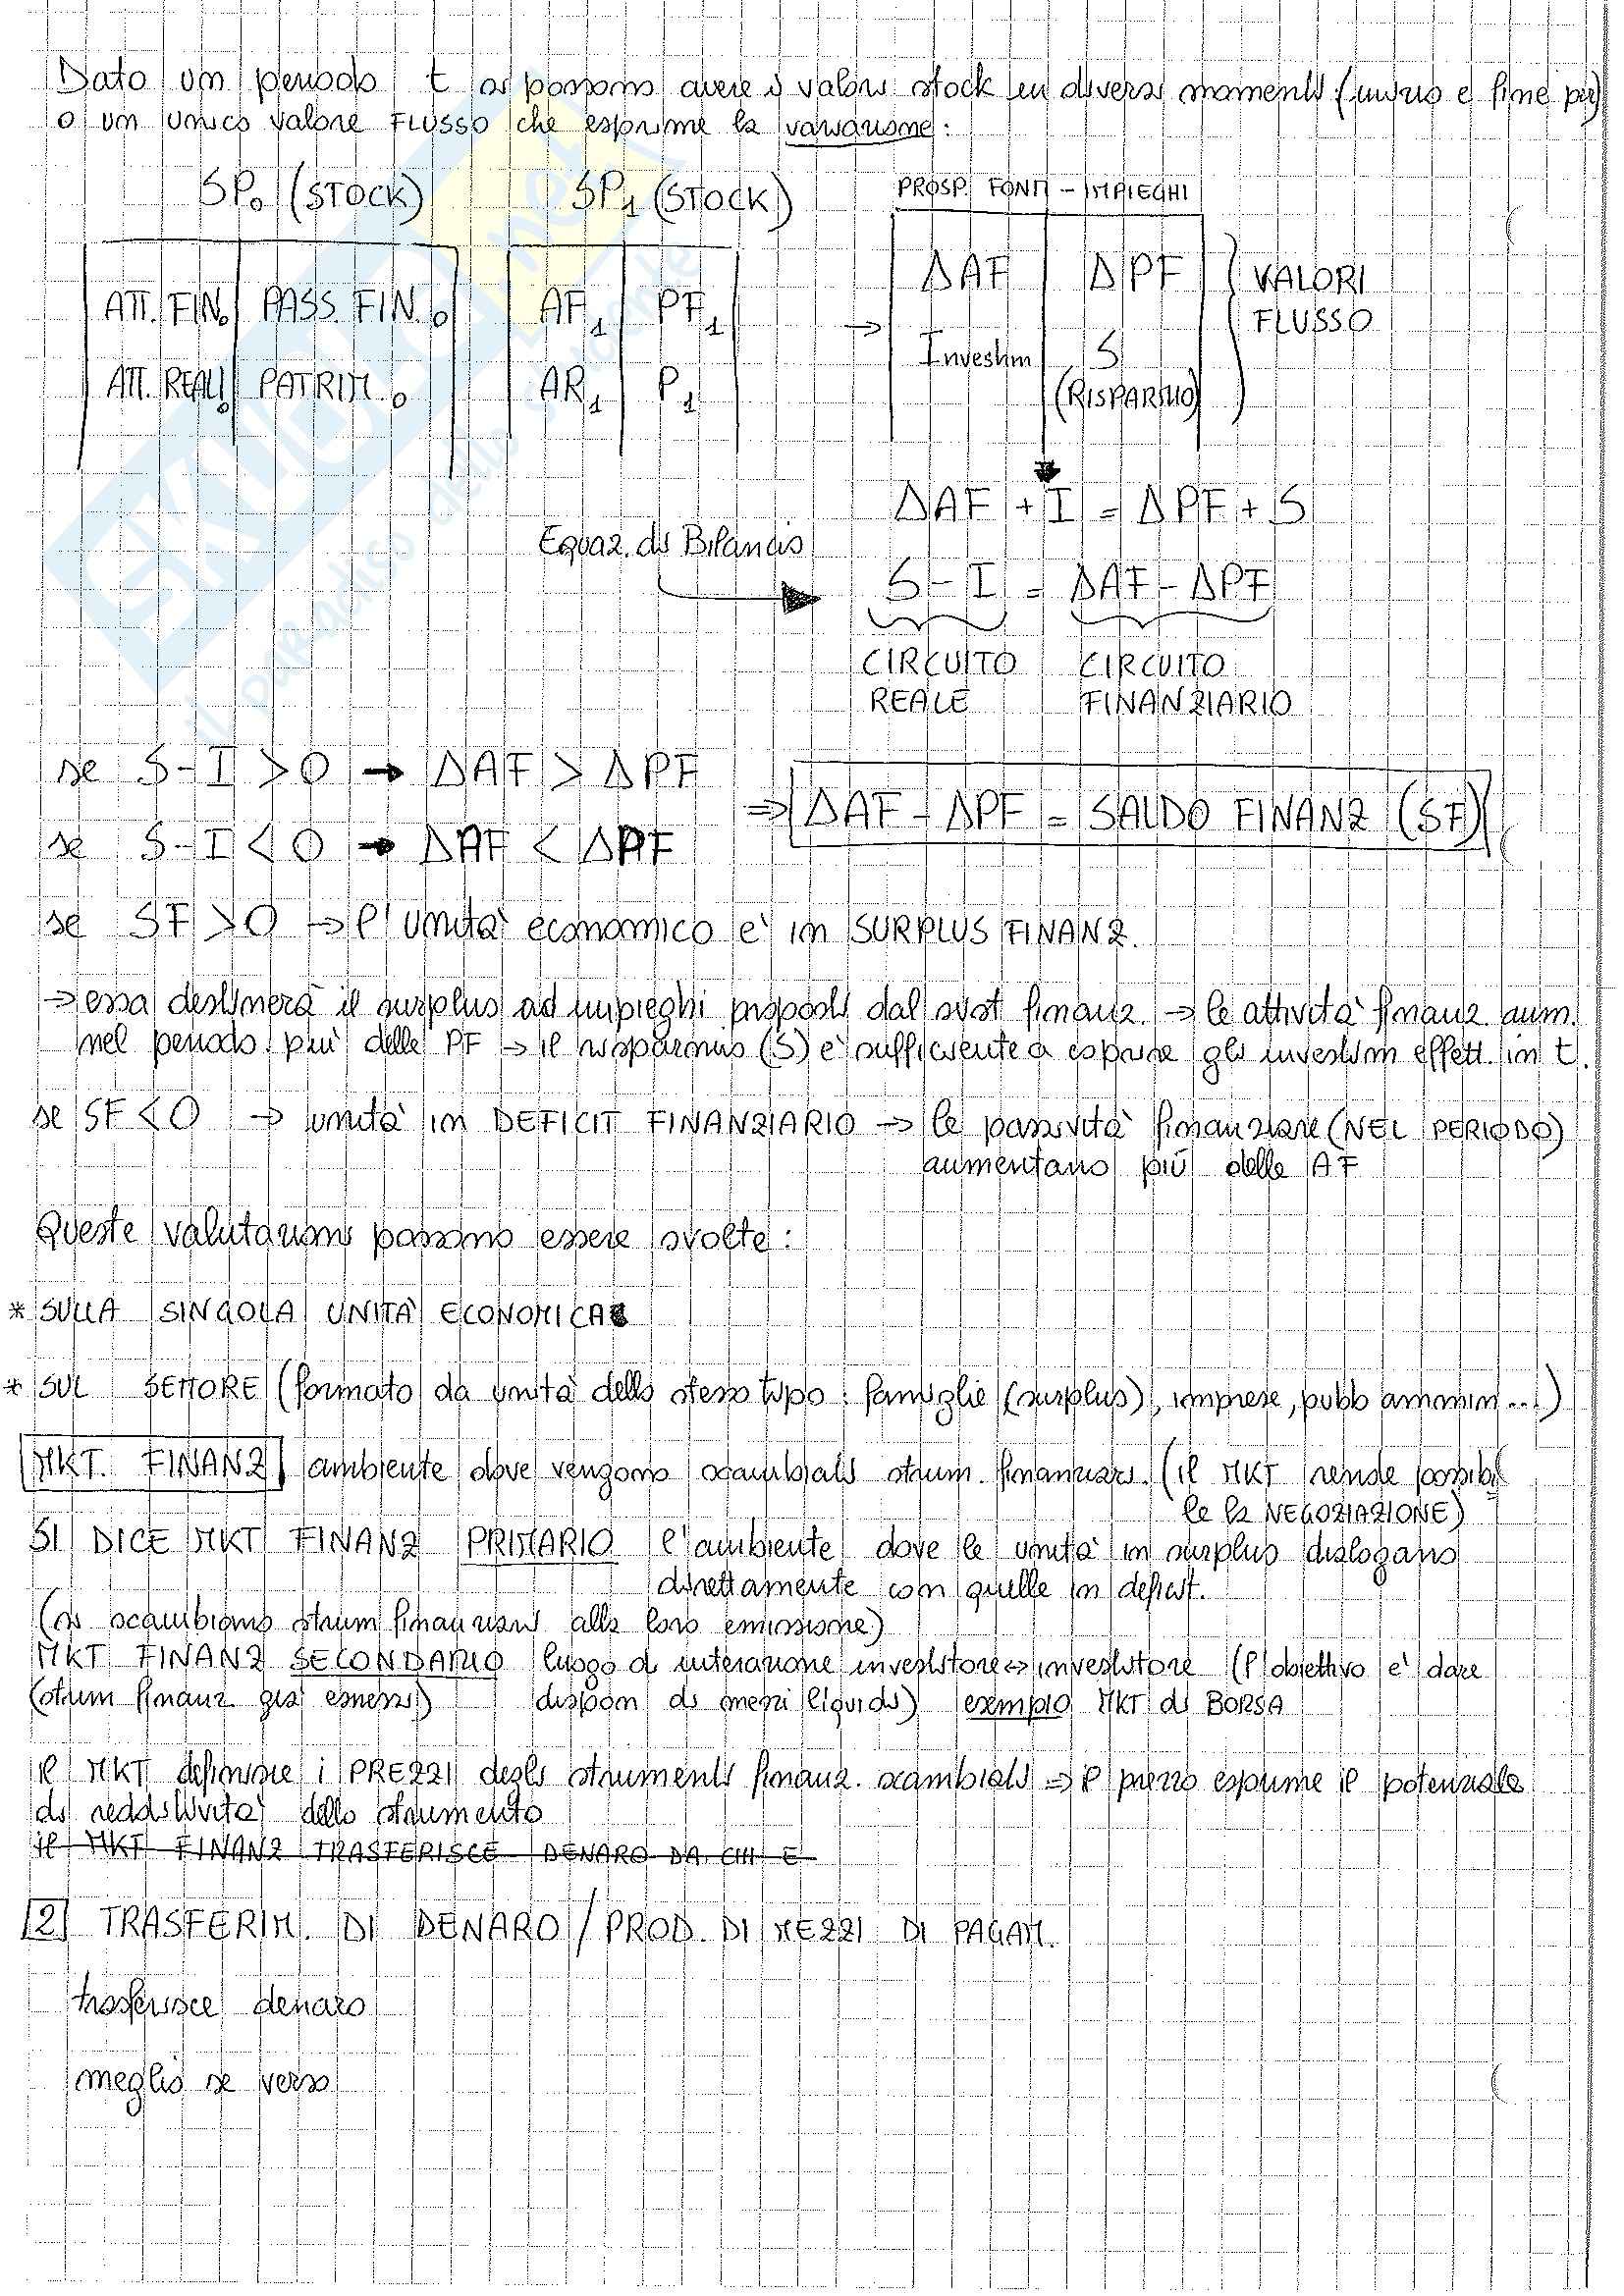 Dato un periodo t si possono avere i valori stock in diversi momenti (inizio e fine per)
o un unico valore FLUSSO che esprime la variazione:
SP0 (STOCK) SP1 (STOCK) PROSP. FONTI - IMPIEGHI
ATT. FIN.0 PASS. FIN.0 AF1 PF1 → ΔAF ΔPF VALORI FLUSSO
ATT. REALI0 PATRIM.0 AR1 P1 Investim S (RISPARMIO)
ΔAF + I = ΔPF + S
Equaz. di Bilancio
S - I = ΔAF - ΔPF
CIRCUITO REALE CIRCUITO FINANZIARIO
se S-I > 0 → ΔAF > ΔPF
⇒ ΔAF - ΔPF = SALDO FINANZ (SF)
se S-I < 0 → ΔAF < ΔPF
se SF > 0 → l'unità economico è in SURPLUS FINANZ.
→ essa destinerà il surplus ad impieghi proposti dal sist finanz. → le attività finanz. aum.
nel periodo più delle PF → il risparmio (S) è sufficiente a coprire gli investim effett. in t.
se SF < 0 → unità in DEFICIT FINANZIARIO → le passività finanziarie (NEL PERIODO)
aumentano più delle AF
Queste valutazioni possono essere svolte:
* SULLA SINGOLA UNITÀ ECONOMICA
* SUL SETTORE (formato da unità dello stesso tipo: famiglie (surplus), imprese, pubb ammin...)
MKT. FINANZ ambiente dove vengono scambiati strum. finanziari. (il MKT rende possibi
le la NEGOZIAZIONE)
SI DICE MKT FINANZ PRIMARIO l'ambiente dove le unità in surplus dialogano
direttamente con quelle in deficit.
(si scambiano strum finanziari alla loro emissione)
MKT FINANZ SECONDARIO luogo di interazione investitore ↔ investitore (l'obiettivo è dare
(strum finanz già emessi) dispon di mezzi liquidi) esempio MKT di BORSA
il MKT definisce i PREZZI degli strumenti finanz. scambiati ⇒ il prezzo esprime il potenziale
di redditività dello strumento
il MKT FINANZ TRASFERISCE DENARO DA CHI È
2 TRASFERIM. DI DENARO / PROD. DI MEZZI DI PAGAM.
trasferisce denaro
meglio se verso